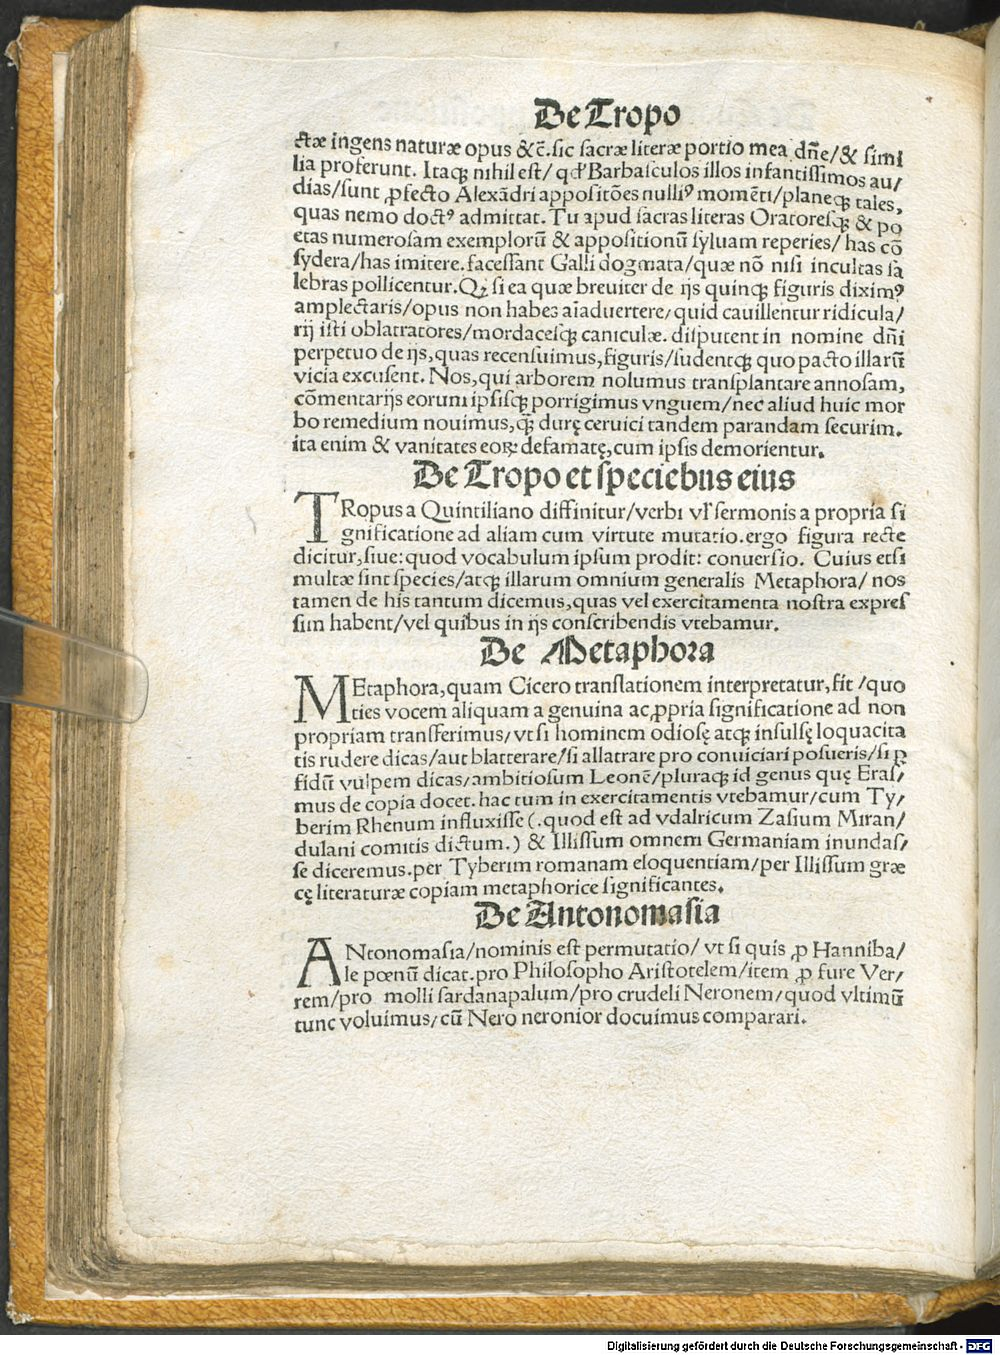 De Tropo
ctæ ingens naturæ opus &c̄. sic sacræ literæ portio mea dn̄e/& simi
lia proferunt. Itaqꝫ nihil est/ qd' Barbaisculos illos infantissimos au/
dias/sunt ꝓfecto Alexādri appositōes nulliꝰ momēti/planeqꝫ tales,
quas nemo doctꝰ admittat. Tu apud sacras literas Oratoresqꝫ & po
etas numerosam exemplorū & appositionū syluam reperies/ has cō
sydera/has imitere. facessant Galli dogmata/quæ nō nisi incultas sa
lebras pollicentur. Qꝫ si ea quæ breuiter de ijs quinqꝫ figuris diximꝰ
amplectaris/opus non habes aīaduertere/quid cauillentur ridicula/
rij isti oblatratores/mordacesqꝫ caniculæ. disputent in nomine dn̄i
perpetuo de ijs, quas recensuimus, figuris/sudentqꝫ quo pacto illarū
vicia excusent. Nos, qui arborem nolumus transplantare annosam,
cōmentarijs eorum ipsisqꝫ porrigimus vnguem/nec aliud huic mor
bo remedium nouimus, qꝫ̄ durę ceruici tandem parandam securim.
ita enim & vanitates eoꝝ defamatę, cum ipsis demorientur.
De Tropo et speciebus eius
TRopus a Quintiliano diffinitur/verbi vl' sermonis a propria si
gnificatione ad aliam cum virtute mutatio. ergo figura recte
dicitur, siue: quod vocabulum ipsum prodit: conuersio. Cuius etsi
multæ sint species/atqꝫ illarum omnium generalis Metaphora/ nos
tamen de his tantum dicemus, quas vel exercitamenta nostra expres
sim habent/vel quibus in ijs conscribendis vtebamur.
De Metaphora
MEtaphora, quam Cicero translationem interpretatur, fit /quo
ties vocem aliquam a genuina ac ꝓpria significatione ad non
propriam transferimus/ vt si hominem odiosę atqꝫ insulsę loquacita
tis rudere dicas/aut blatterare/si allatrare pro conuiciari posueris/si ꝑ
fidū vulpem dicas/ambitiosum Leonē/pluraqꝫ id genus quę Eras/
mus de copia docet. hac tum in exercitamentis vtebamur/cum Ty/
berim Rhenum influxisse (.quod est ad vdalricum Zasium Miran/
dulani comitis dictum.) & Illissum omnem Germaniam inundas/
se diceremus. per Tyberim romanam eloquentiam/per Illissum græ
cę literaturæ copiam metaphorice significantes.
De Antonomasia
ANtonomasia/nominis est permutatio/ vt si quis ꝓ Hanniba/
le pœnū dicat. pro Philosopho Aristotelem/item ꝓ fure Ver/
rem/pro molli sardanapalum/pro crudeli Neronem/quod vltimū
tunc voluimus/cū Nero neronior docuimus comparari.
Digitalisierung gefördert durch die Deutsche Forschungsgemeinschaft - DFG